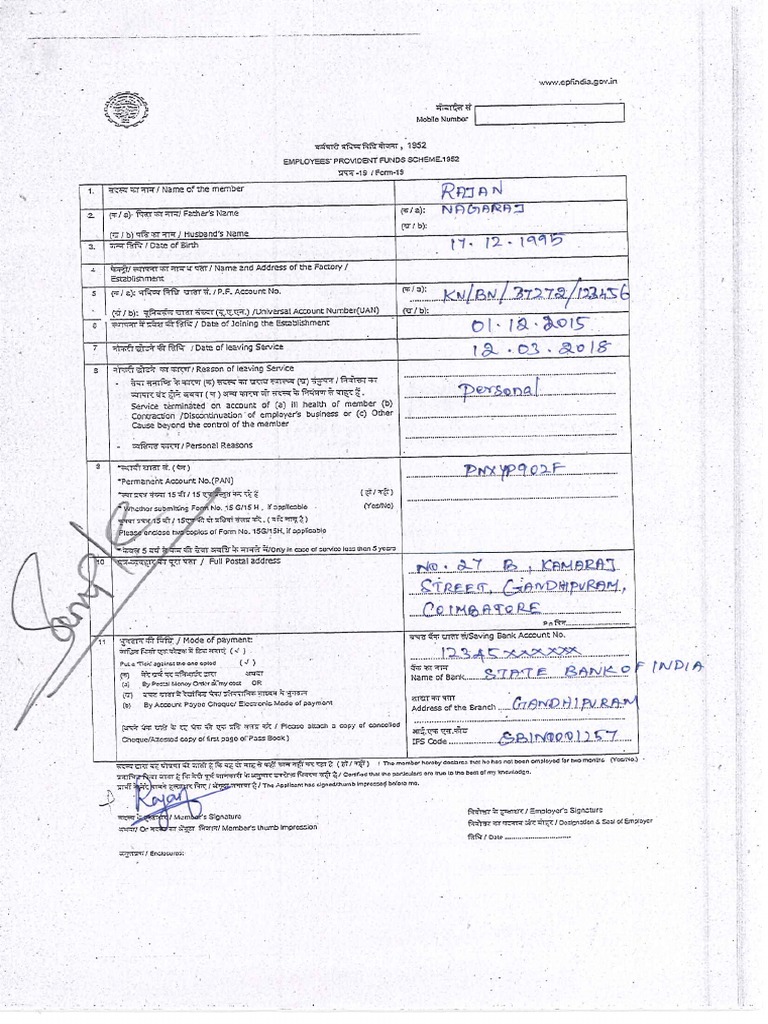 www.epfindia.gov.in
मोबाईल सं
Mobile Number
कर्मचारी भविष्य निधि योजना, 1952
EMPLOYEES' PROVIDENT FUNDS SCHEME.1952
प्रपत्र -19 / Form-19
1. सदस्य का नाम / Name of the member RAJAN
2. (क / a)- पिता का नाम/ Father's Name (क / a): NAGARAJ
(ख / b) पति का नाम / Husband's Name (ख / b):
3. जन्म तिथि / Date of Birth 17.12.1995
4 फैक्ट्री/ स्थापना का नाम व पता / Name and Address of the Factory /
Establishment
5 (क / a): भविष्य निधि खाता सं. / P.F. Account No. (क / a): KN/BN/37272/123456
(ख / b): यूनिवर्सल खाता संख्या (यू.ए.एन.) /Universal Account Number(UAN) (ख / b):
6 स्थापना में प्रवेश की तिथि / Date of Joining the Establishment 01.12.2015
7 नौकरी छोड़ने की तिथि / Date of leaving Service 12.03.2018
8 नौकरी छोड़ने का कारण / Reason of leaving Service
Personal
Service terminated on account of (a) ill health of member (b)
Contraction /Discontinuation of employer's business or (c) Other
Cause beyond the control of the member
- व्यक्तिगत कारण / Personal Reasons
9 *स्थायी खाता सं. (पैन) PNXYP902F
*Permanent Account No.(PAN)
(हाँ / नहीं)
* Whether submitting Form No. 15 G/15 H, if applicable (Yes/No)
Please enclose two copies of Form No. 15G/15H, if applicable
/Only in case of service less than 5 years
Sample
10 पत्र-व्यवहार का पूरा पता / Full Postal address NO. 27 B, KAMARAJ
STREET, GANDHIPURAM,
COIMBATORE
Pin पिन
11 भुगतान की विधि / Mode of payment: बचत बैंक खाता सं/Saving Bank Account No.
12345xxxxxxx
Put a 'Tick' against the one opted (✓)
बैंक का नाम
Name of Bank STATE BANK OF INDIA
(a) By Postal Money Order at my cost OR
शाखा का पता
(b) By Account Payee Cheque/ Electronic Mode of payment
Address of the Branch GANDHIPURAM
/ Please attach a copy of cancelled
Cheque/Attested copy of first page of Pass Book)
आई.एफ.एस.कोड
IFS Code SBIN0001257
The member hereby declares that he has not been employed for two months (Yes/No)
/ Certified that the particulars are true to the best of my knowledge.
/ The Applicant has signed/thumb impressed before me.
Rajan
सदस्य के हस्ताक्षर / Member's Signature
Or सदस्य का अंगूठा निशान/ Member's thumb impression
नियोक्ता के हस्ताक्षर / Employer's Signature
नियोक्ता का पदनाम और मोहर / Designation & Seal of Employer
तिथि / Date
अनुलग्नक / Enclosures: